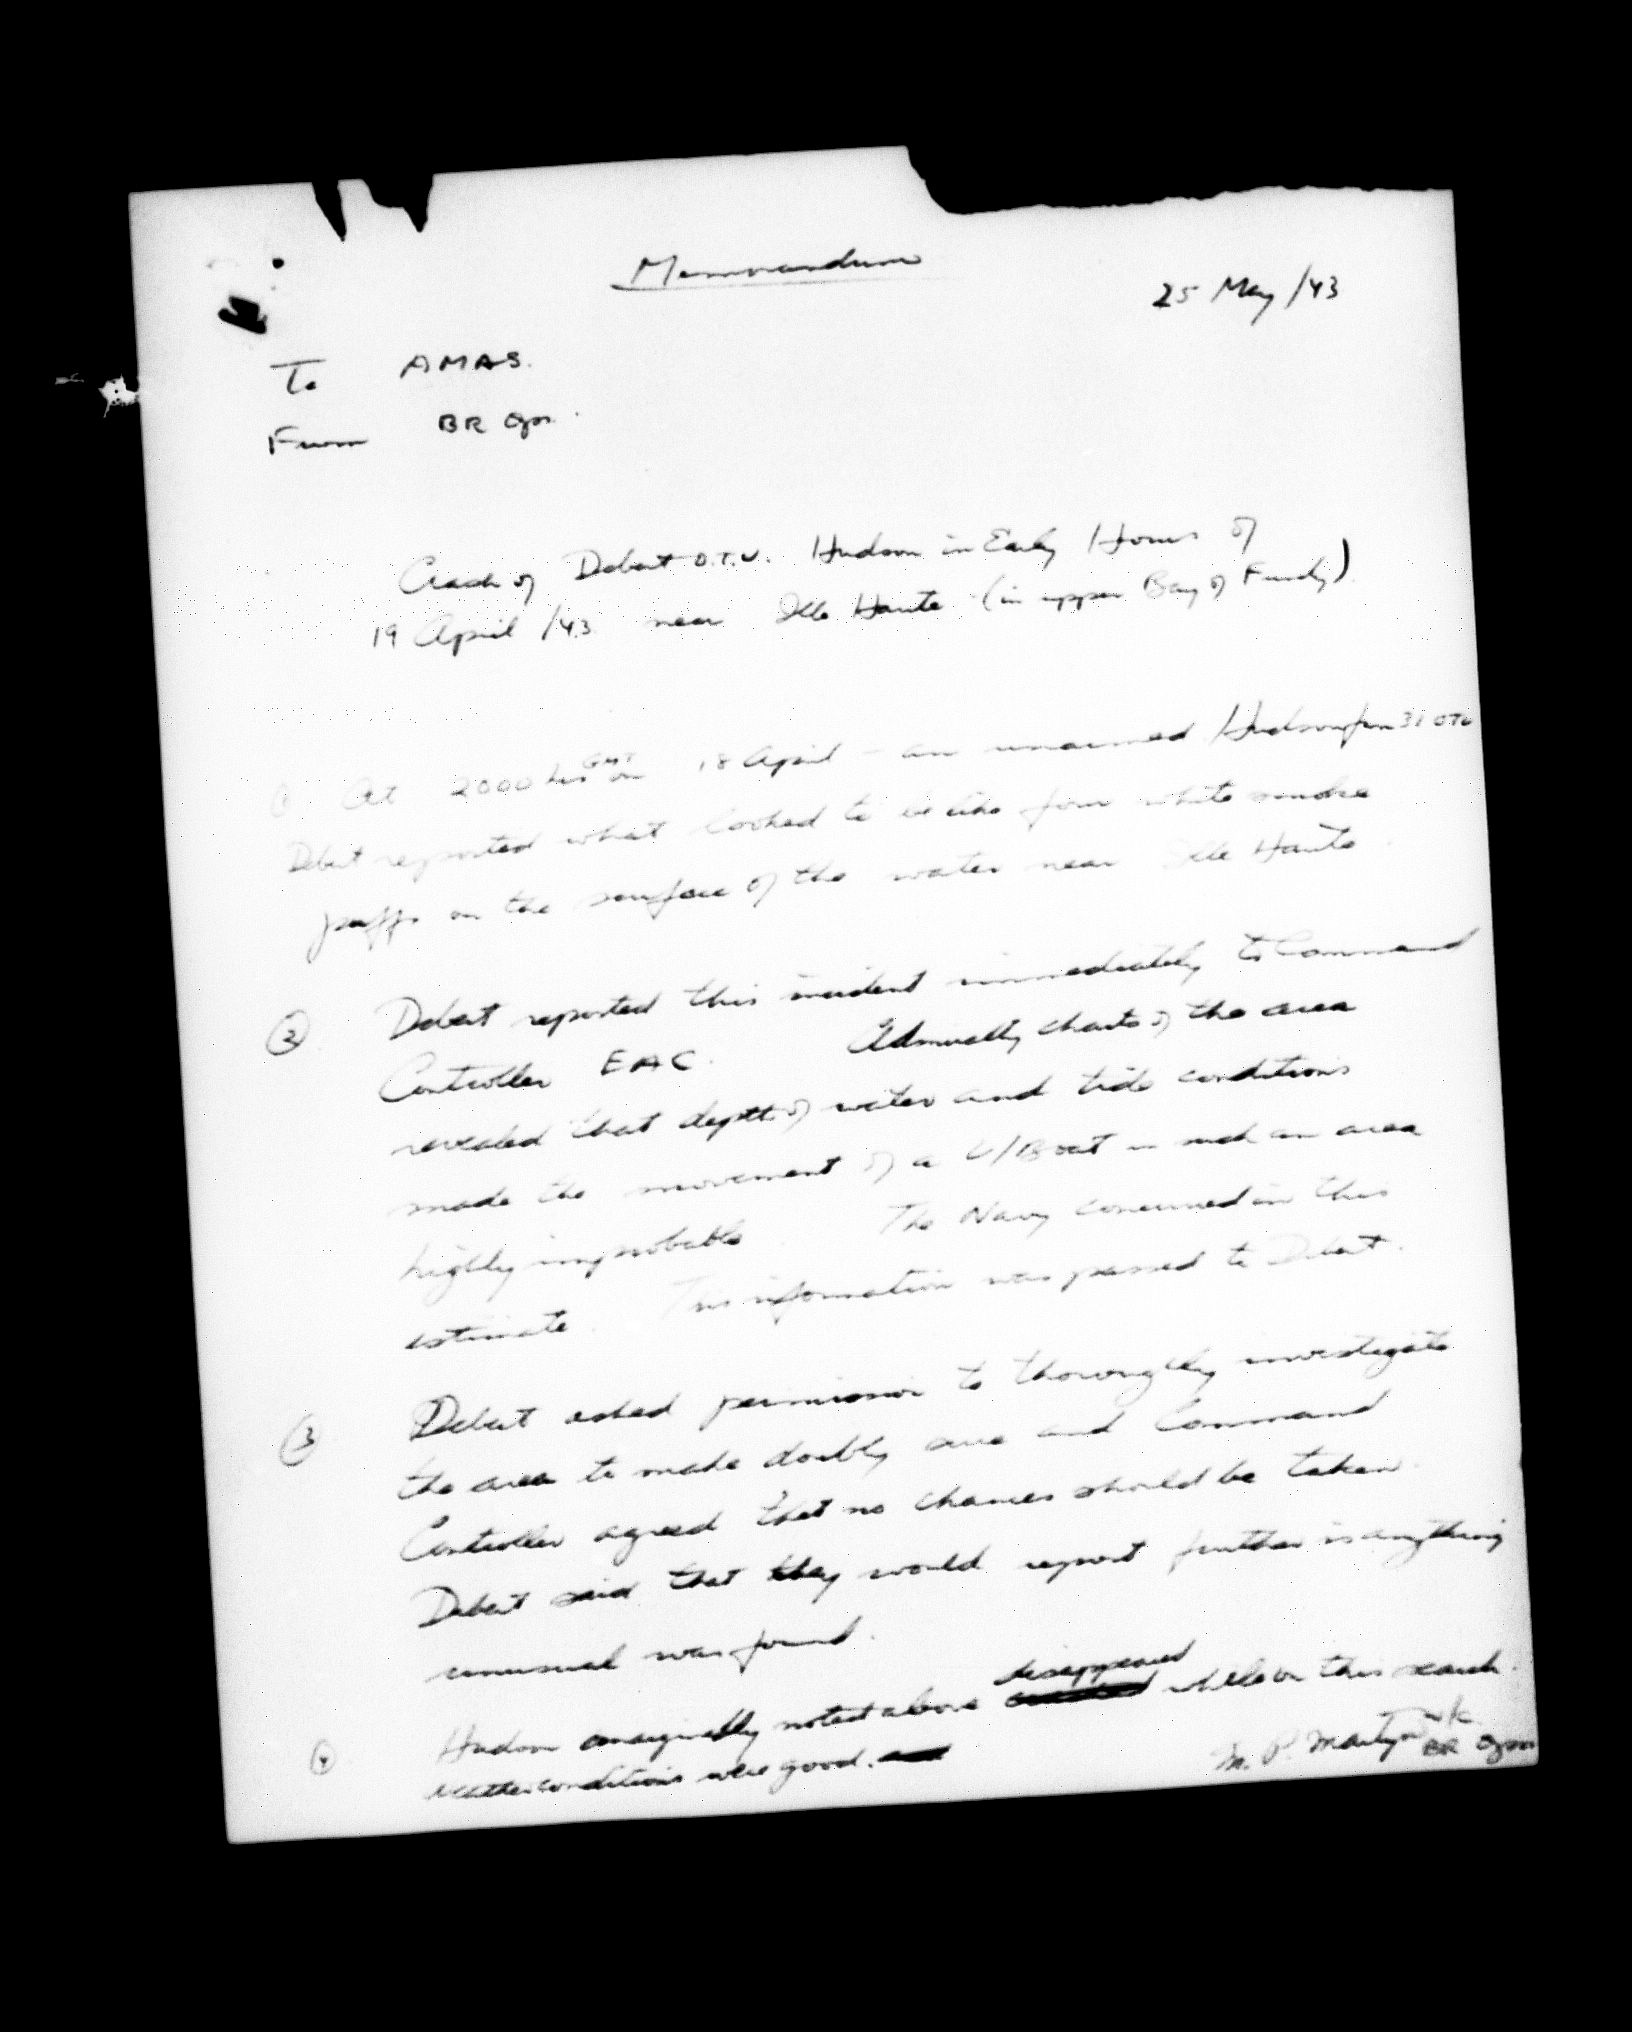 Memorandum
25 May /43
To AMAS.
From BR Ops.
Crash of Debert O.T.U. Hudson in Early Hours of
19 April /43 near Ille Haute (in upper Bay of Fundy)
① At 2000 hrs GMT on 18 April - an unarmed Hudson from 31 OTU
Debert reported what looked to be like four white smoke
puffs on the surface of the water near Ille Haute
② Debert reported this incident immediately to Command
Controller EAC. Admiralty charts of the area
revealed that depth of water and tide conditions
made the movement of a U/Boat in such an area
highly improbable. The Navy concurred in this
estimate. This information was passed to Debert.
③ Debert asked permission to thoroughly investigate
the area to make doubly sure and Command
Controller agreed that no chances should be taken.
Debert said that they would report further if anything
unusual was found.
④ Hudson marginally noted above disappeared while on this search.
Weather conditions were good.
M. P. Martyn W/C
BR Ops